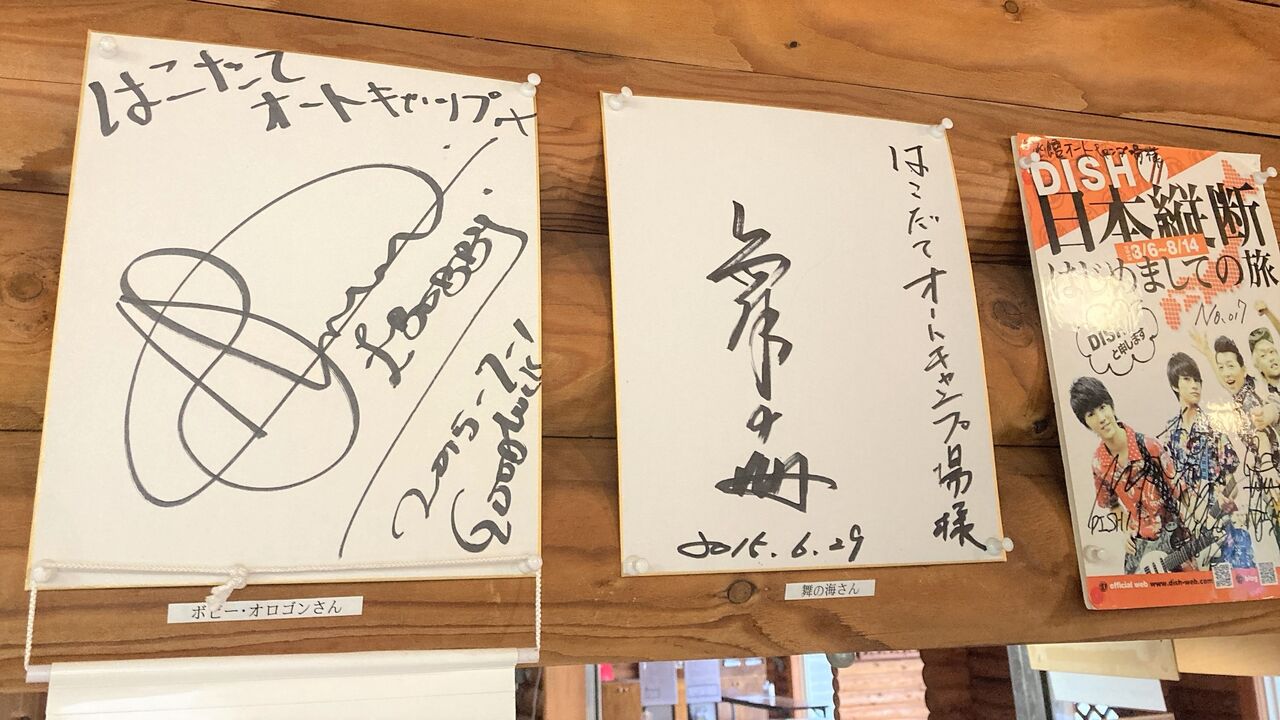 はこだて
オートキャンプ〆
BOBBY.
2015-7-1
Good luck!
ボビー・オロゴンさん
はこだてオートキャンプ場様
舞の海
2015.6.29
舞の海さん
函館オートキャンプ場様
DISH//
日本縦断
3/6~8/14
はじめましての旅
No.017
DISH//
と申します
DISH//
official web www.dish-web.com
blog